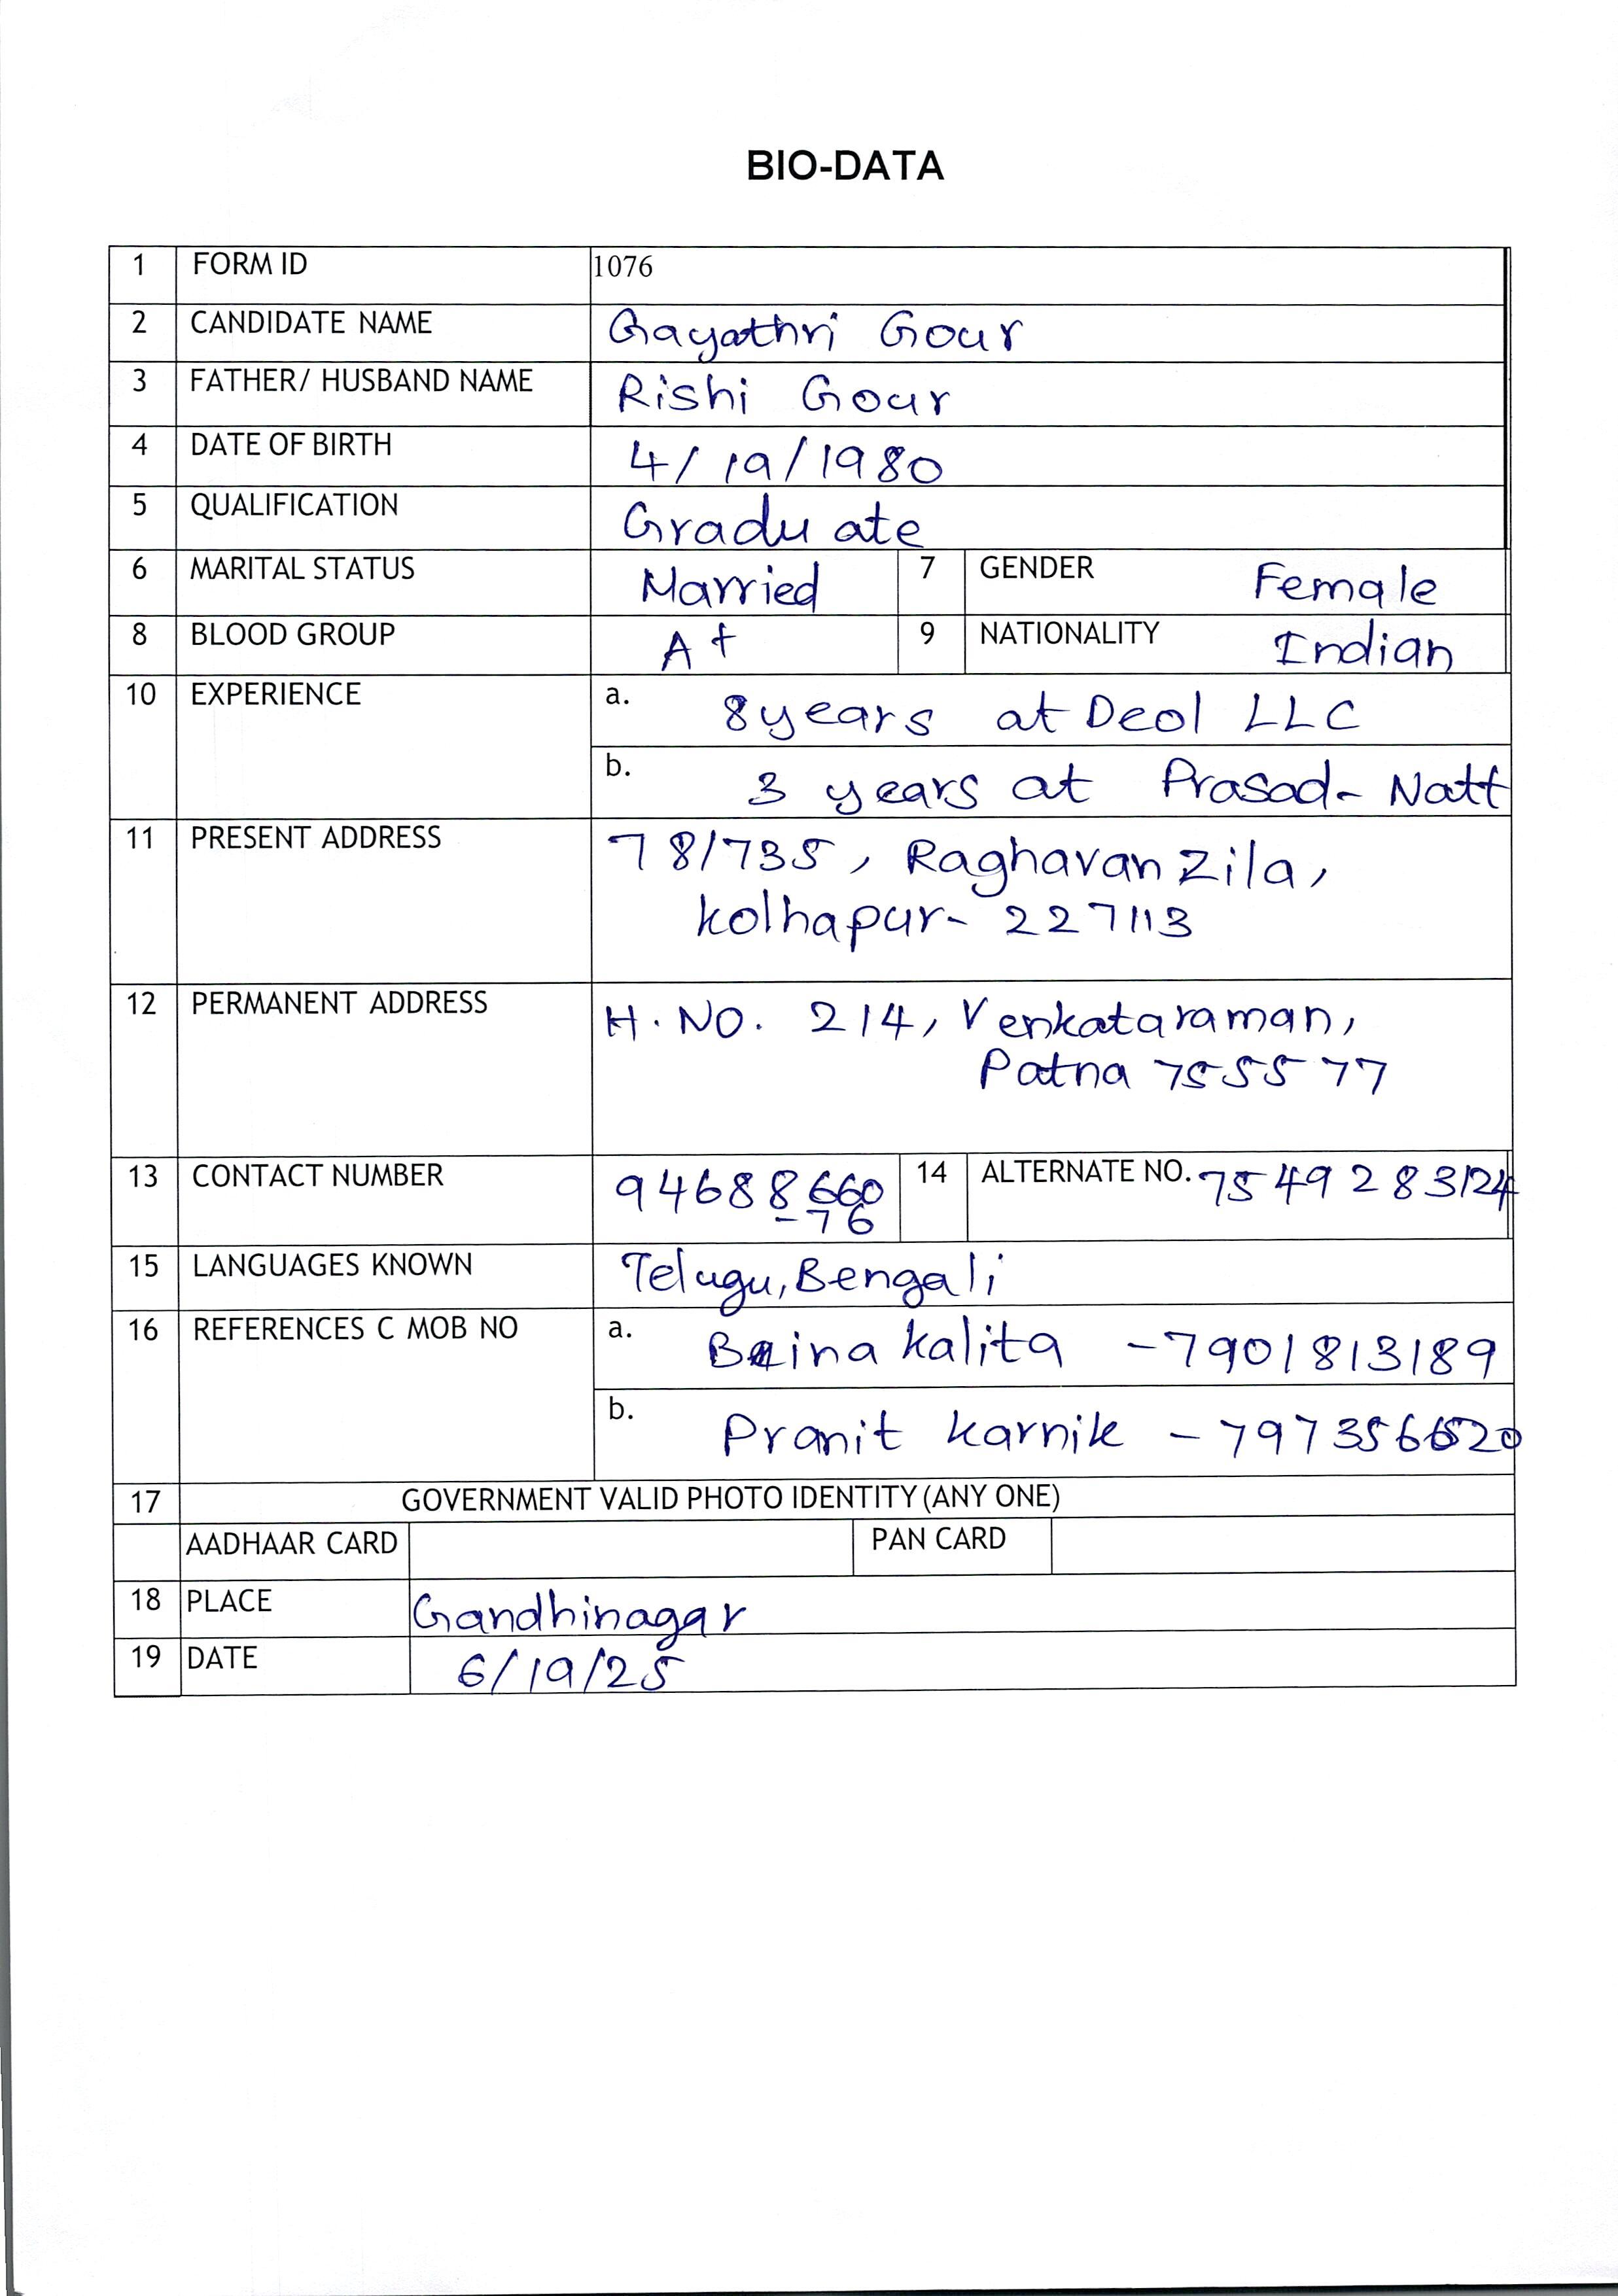 BIO-DATA
1 FORM ID 1076
2 CANDIDATE NAME Gayathri Gour
3 FATHER/ HUSBAND NAME Rishi Gour
4 DATE OF BIRTH 4/19/1980
5 QUALIFICATION Graduate
6 MARITAL STATUS Married 7 GENDER Female
8 BLOOD GROUP A+ 9 NATIONALITY Indian
10 EXPERIENCE a. 8 years at Deol LLC
b. 3 years at Prasad-Natt
11 PRESENT ADDRESS 78/735, Raghavan Zila,
Kolhapur- 227113
12 PERMANENT ADDRESS H.NO. 214, Venkataraman,
Patna 755577
13 CONTACT NUMBER 94688660 14 ALTERNATE NO. 7549283124
-76
15 LANGUAGES KNOWN Telugu, Bengali
16 REFERENCES C MOB NO a. Baina Kalita - 7901813189
b. Pranit Karnik - 7973566520
17 GOVERNMENT VALID PHOTO IDENTITY (ANY ONE)
AADHAAR CARD PAN CARD
18 PLACE Gandhinagar
19 DATE 6/19/25